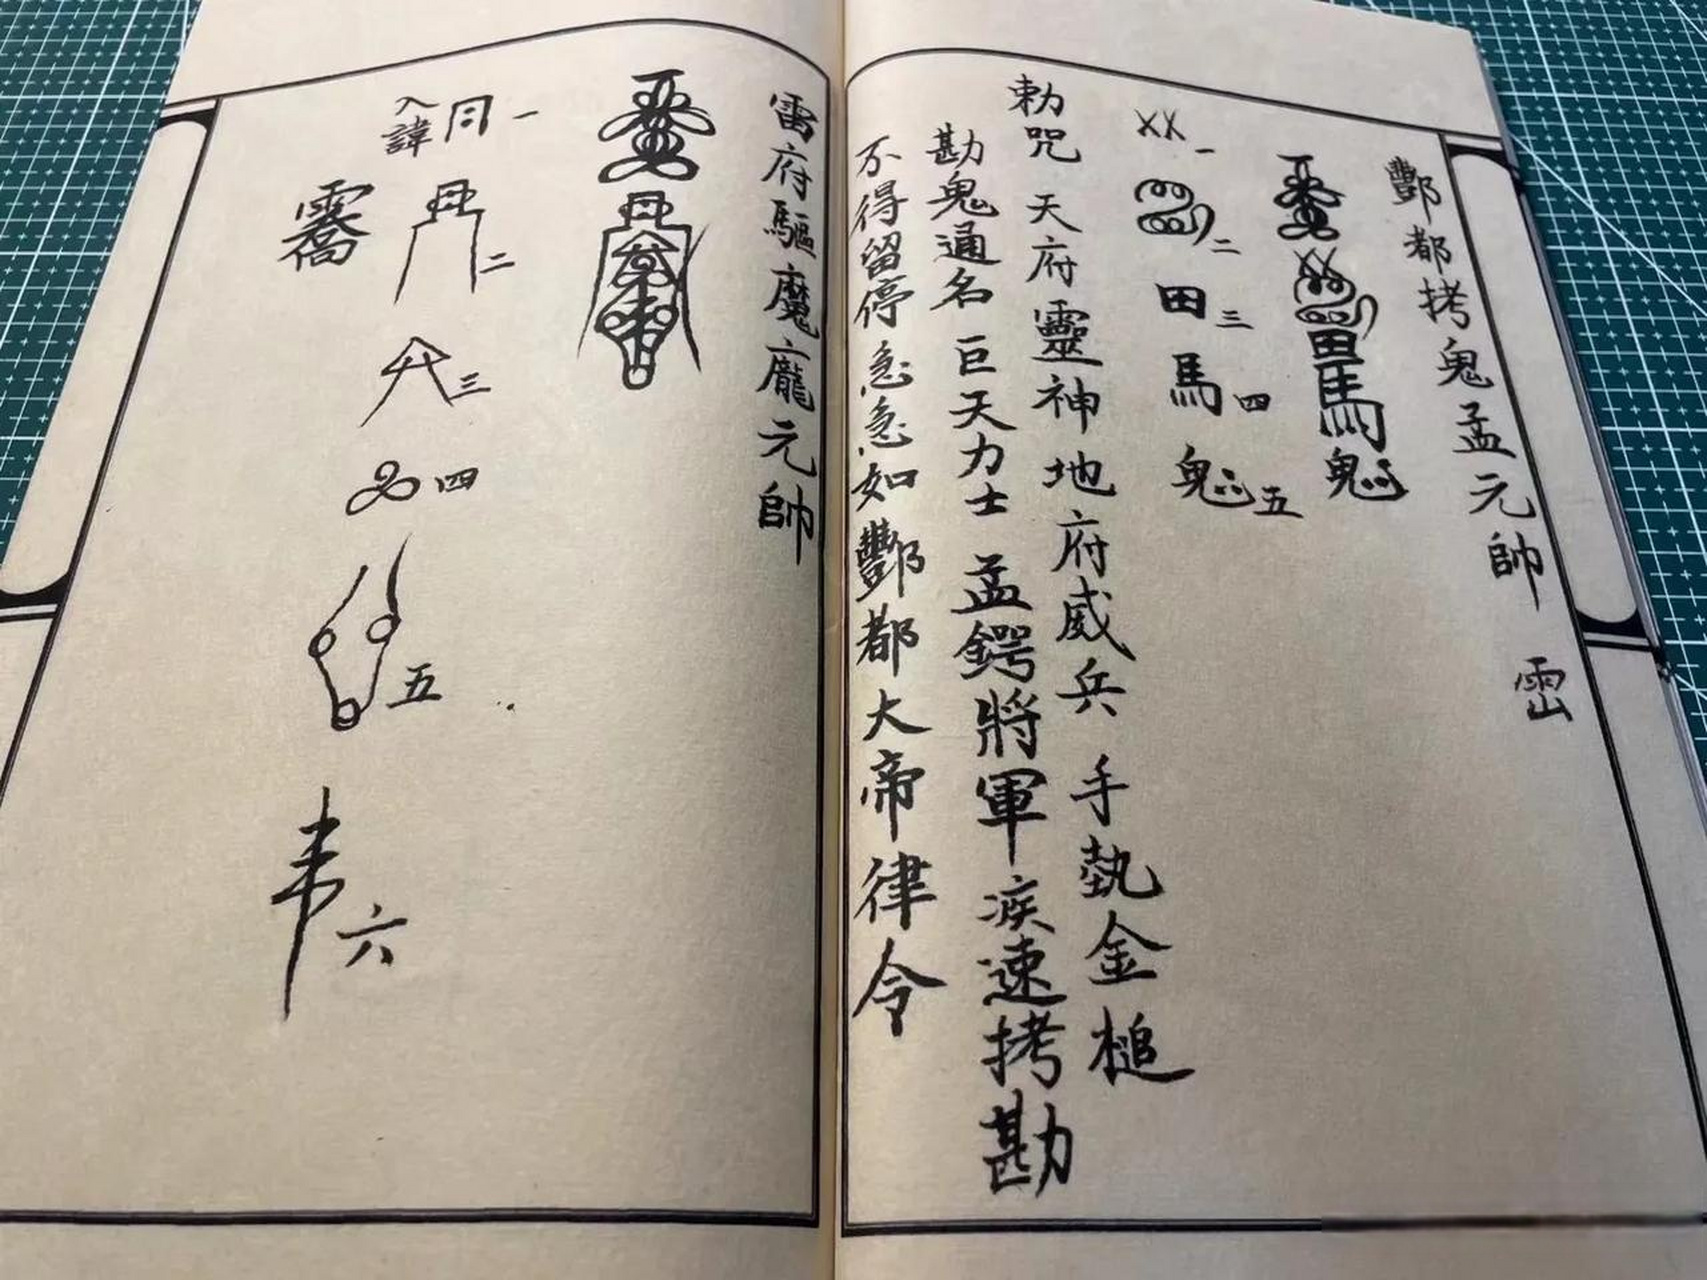 酆都拷鬼孟元帥
一
二
田三
馬四
鬼五
勅咒 天府靈神地府威兵 手執金槌
勘鬼通名 巨天力士 孟鍔將軍 疾速拷勘
不得留停急急如酆都大帝律令
雷府驅魔龐元帥
一
二
三
四
五
六
入諱